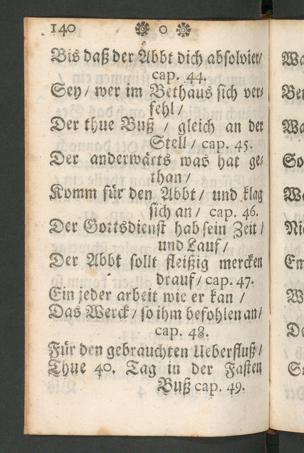 140 ❁ o ❁
Bis daß der Abbt dich absolvier/
cap. 44.
Sey / wer im Bethaus sich ver-
fehl /
Der thue Buß / gleich an der
Stell / cap. 45.
Der anderwärts was hat ge-
than /
Komm für den Abbt / und klag
sich an / cap. 46.
Der Gottsdienst hab sein Zeit /
und Lauf /
Der Abbt sollt fleißig mercken
drauf / cap. 47.
Ein jeder arbeit wie er kan /
Das Werck / so ihm befohlen an /
cap. 48.
Für den gebrauchten Ueberfluß /
Thue 40. Tag in der Fasten
Buß cap. 49.